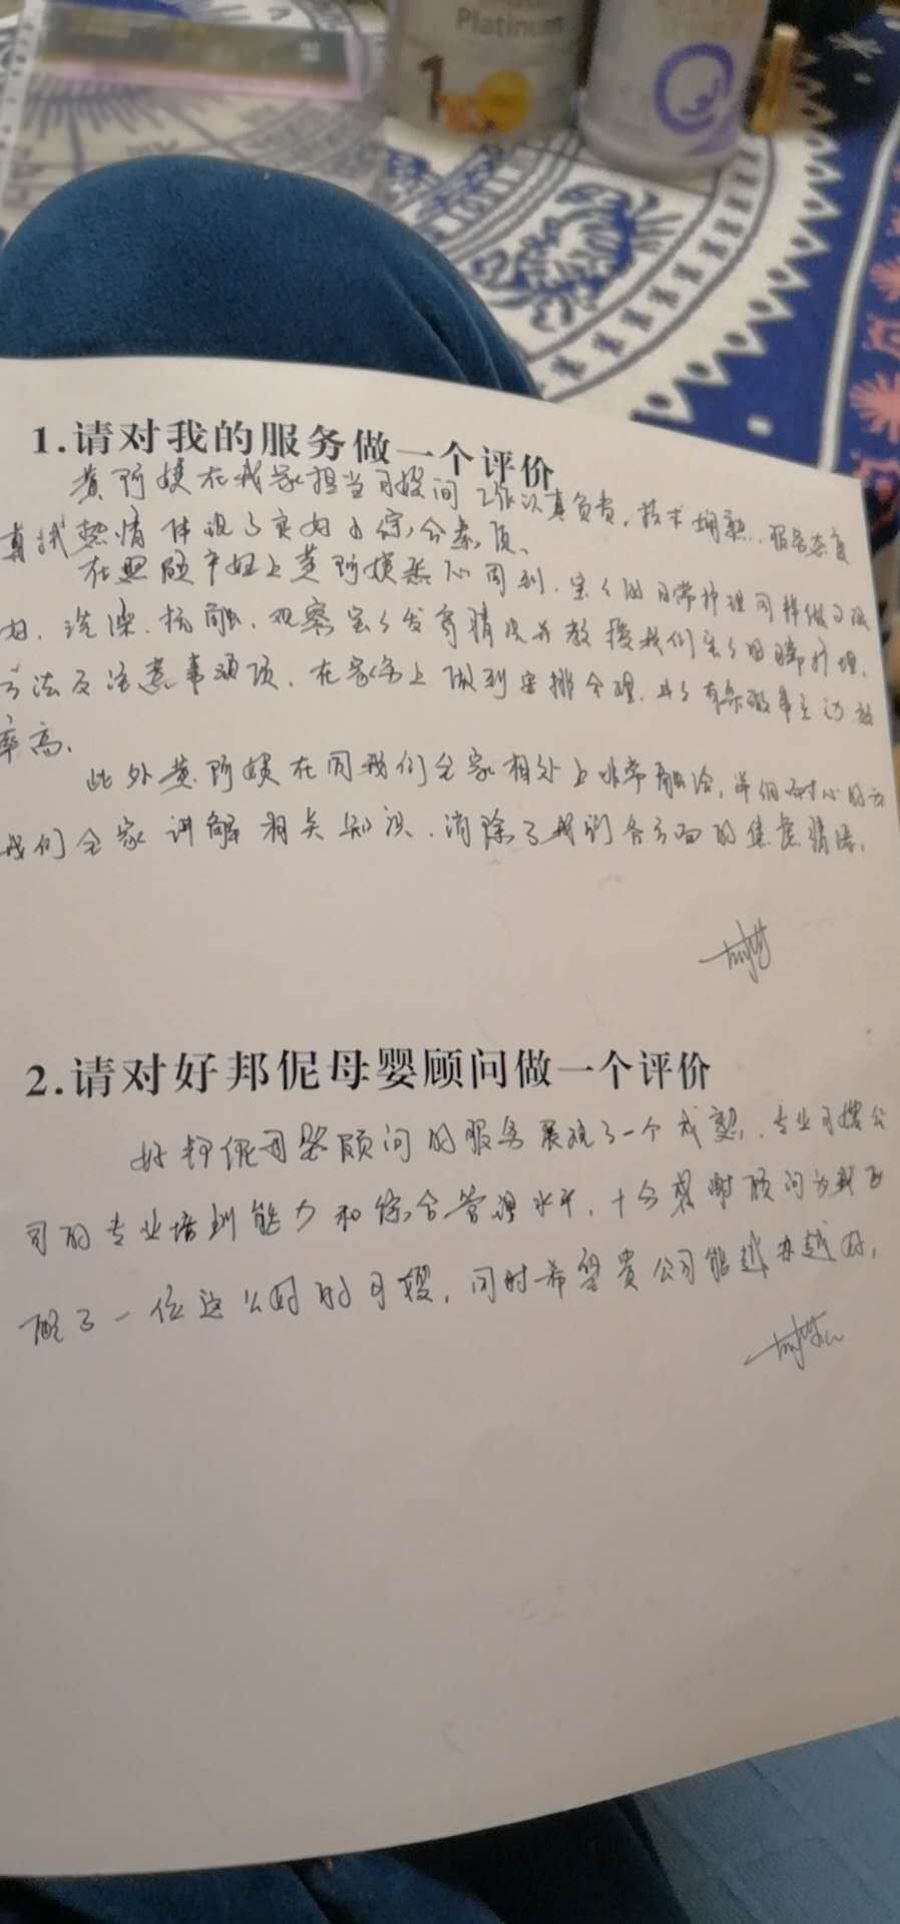 Platinum
1
1.请对我的服务做一个评价
黄阿姨在我家担当月嫂间工作认真负责，技术娴熟，服务态度
真诚热情体现了良好的综合素质。
在照顾产妇上黄阿姨悉心周到，宝宝的日常护理同样做的很
好，洗澡、抚触、观察宝宝发育情况并教授我们宝宝日常护理，
方法及注意事项，在家务上做到安排合理，井井有条做事主动效
率高。
此外黄阿姨在同我们全家相处上非常融洽，详细耐心的为
我们全家讲解相关知识，消除了我们各方面的焦虑情绪。
2.请对好邦伲母婴顾问做一个评价
好邦伲母婴顾问的服务展现了一个成熟、专业月嫂公
司的专业培训能力和综合管理水平，十分感谢顾问为我匹
配了一位这么好的月嫂，同时希望贵公司能越办越好，